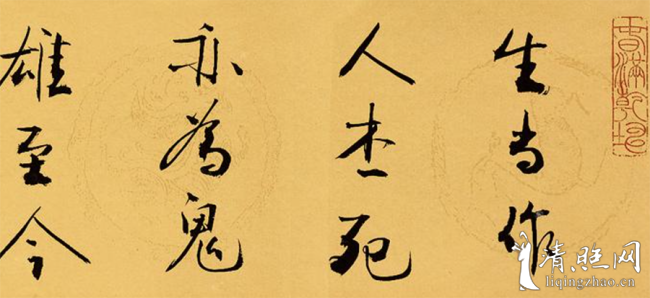 生当作
人杰死
亦為鬼
雄至今
清照网
liqingzhao.cn